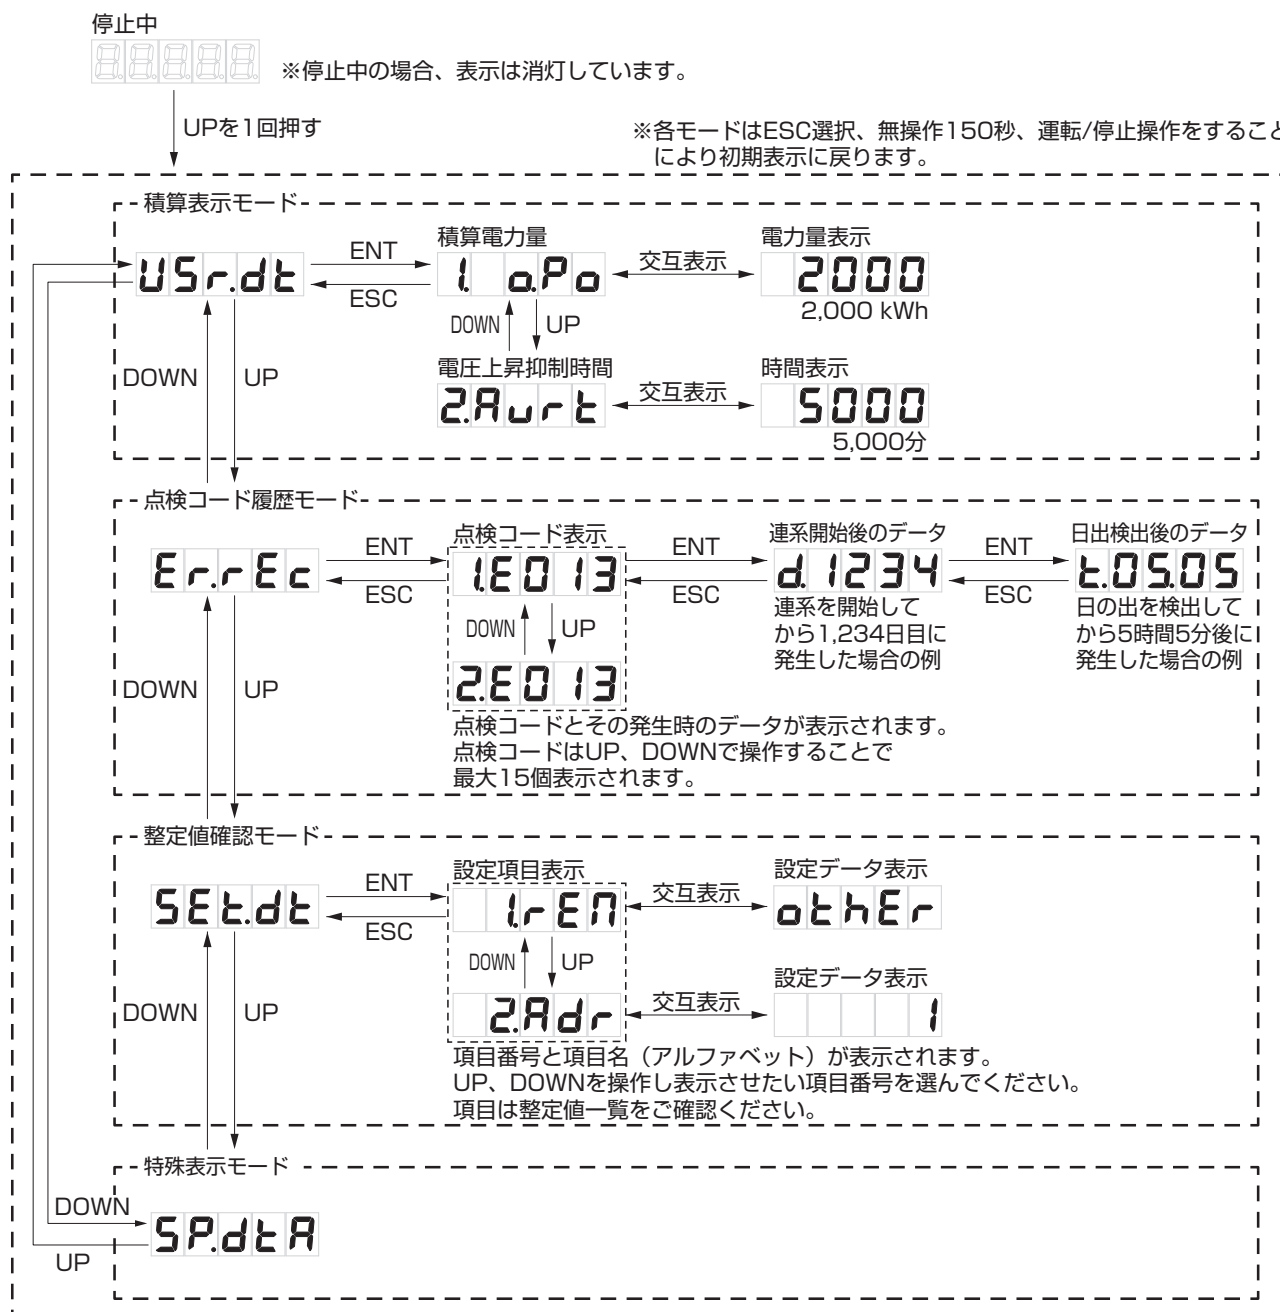 停止中
8.8.8.8.8.
※停止中の場合、表示は消灯しています。
UPを1回押す
※各モードはESC選択、無操作150秒、運転/停止操作をすること
により初期表示に戻ります。
積算表示モード
USr.dt
ENT
ESC
積算電力量
1. o.Po
交互表示
電力量表示
2000
2,000 kWh
DOWN
UP
DOWN
UP
電圧上昇抑制時間
2.Avrt
交互表示
時間表示
5000
5,000分
点検コード履歴モード
Er.rEc
ENT
ESC
点検コード表示
1.E013
DOWN
UP
2.E013
ENT
ESC
連系開始後のデータ
d.1234
連系を開始して
から1,234日目に
発生した場合の例
ENT
ESC
日出検出後のデータ
t.05.05
日の出を検出して
から5時間5分後に
発生した場合の例
DOWN
UP
点検コードとその発生時のデータが表示されます。
点検コードはUP、DOWNで操作することで
最大15個表示されます。
整定値確認モード
SEt.dt
ENT
ESC
設定項目表示
1.rEM
交互表示
設定データ表示
othEr
DOWN
UP
2.Adr
交互表示
設定データ表示
1
DOWN
UP
項目番号と項目名（アルファベット）が表示されます。
UP、DOWNを操作し表示させたい項目番号を選んでください。
項目は整定値一覧をご確認ください。
特殊表示モード
DOWN
SP.dtA
UP